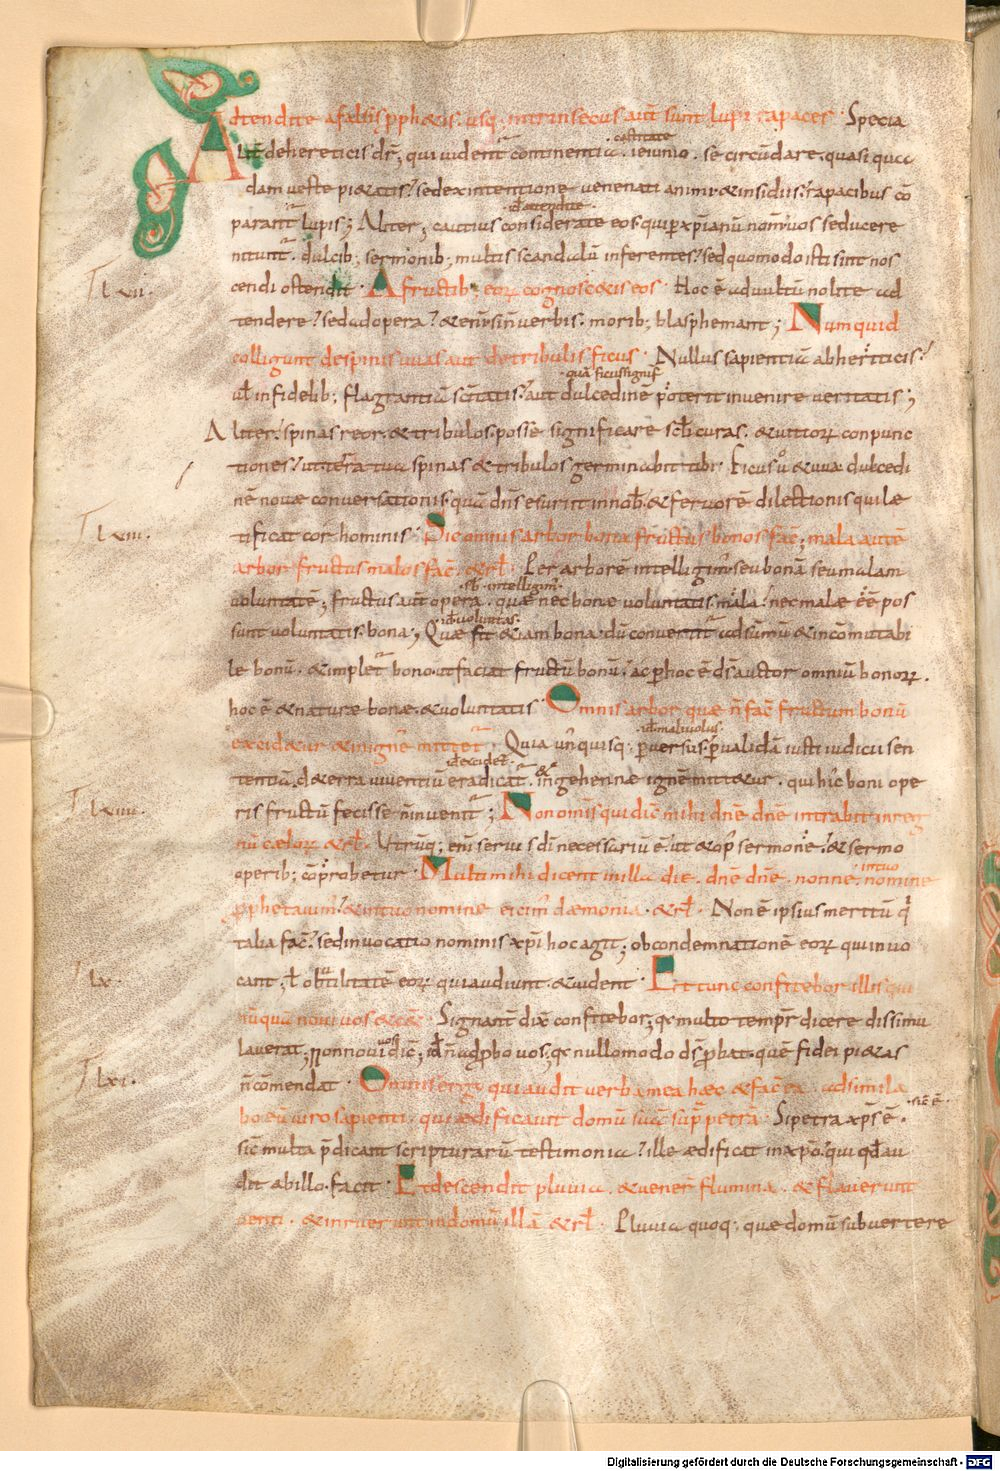 Adtendite a falsis ꝓph&is. usq; intrinsecus aut̄ sunt lupi rapaces. Specia
lit̄ de hereticis dr̄; qui uident̄ continentia. ieiunio. se circūdare. quasi qua
castitate
dam ueste pi&atis? sed ex intentione uenenati animi & insidiis? rapacibus cō
parant̄ lupis; Aliter; cautius considerate eos. qui ꝑ xp̄ianū nom̄ uos seducere
.i. attendite.
nitunt̄. dulcib; sermonib; multis scandalū inferentes? sed quomodo isti sint nos
cendi ostendit. A fructib; eoꝝ cognosc&is eos. Hoc ē ad uultū nolite ad
lvii.
tendere? sed ad opera? & eni si in uerbis. morib; blasphemant; Numquid
colligunt de spinis uuas aut de tribulis ficus. Nullus sapientiā ab hereticis?
quā ficus signif̄
ul̄ infidelib; flagrantiā sc̄itatis? aut dulcedinē poterit inuenire ueritatis;
Aliter. spinas reor. & tribulos. posse significare sc̄li curas. & uitioꝝ conpunc
tiones? ut terra tua spinas & tribulos germinabit tibi. Ficus ů & uuæ dulcedi
nē nouæ conuersationis. quā dn̄s esurit in nob̄. & feruorē dilectionis qui læ
tificat cor hominis. Sic omnis arbor bona fructus bonos fac̄; mala autē
lviii.
arbor fructus malos fac̄. & rl̄. Per arborē intelligim̄ seu bonā seu malam
sb̄. intelligim̄.
uoluntatē; fructus aut̄ opera. quæ nec bonæ uoluntatis. mala. nec malæ ēe pos
.i. uoluntas.
sunt uoluntatis. bona; Quæ fit & iam bona. dū conuertit̄ ad sūmū & incōmutabi
le bonū. & implet̄ bono. ut faciat fructū bonū. ac ꝑ hoc ē ds̄ auctor omniū bonoꝝ.
hoc ē & naturæ bonæ. & uoluntatis. Omnis arbor quæ n̄ fac̄ fructum bonū
.i. maliuolus.
excid&ur & in ignē mittet̄. Quia un̄ quisq; ꝑuersus. ꝑ ualidā iusti iudicii sen
.i. excidet̄.
tentiā. de terra uiuentiū eradicat̄. & in gehennæ ignē mitt&ur. qui hic boni ope
ris fructū fecisse n̄ inuenit̄; Non omīs qui dic̄ mihi dn̄e dn̄e intrabit in reg
lviiii.
nū cælorꝝ & rl̄. Utrūq; enī seruis dī necessariū ē. ut & op̄ sermone? & sermo
operib; cōprobetur. Multi mihi dicent in illa die. dn̄e dn̄e. nonne. in tuo nomine
ꝓphetauim̄? & in tuo nomine eicim̄ dæmonia. & rl̄. Non ē ipsius meritū q̄
talia fac̄? sed inuocatio nominis xp̄i hoc agit; ob condemnationē eoꝝ qui inuo
cant; ul̄ ob utilitatē eoꝝ qui audiunt. & uident. Et tunc confitebor illis qui
lx.
nūquā noui uos & c&̄. Signant̄ dix̄ confitebor; qꝛ multo tempr̄ dicere dissimu
lauerat; Non noui uos dic̄; id̄ n̄ adꝓbo uos; qꝛ nullo modo ds̄ ꝓbat. quē fidei pi&as
n̄ cōmendat. Omnis ergo qui audit uerba mea hæc & fac̄ ea. adsimila
lxi.
bo eū uiro sapienti. qui ædificauit domū suā sup̄ petrā. Si petra xp̄s ē. sic̄ ē.
sic̄ multa p̄dicant scripturarū testimonia? ille ædificat in xp̄o. qui qd̄ au
dit ab illo. facit. Et descendit pluuia. & uener̄ flumina. & flauerunt
uenti. & inruerunt in domū illā & rl̄. Pluuia quoq; quæ domū subuertere
Digitalisierung gefördert durch die Deutsche Forschungsgemeinschaft - DFG